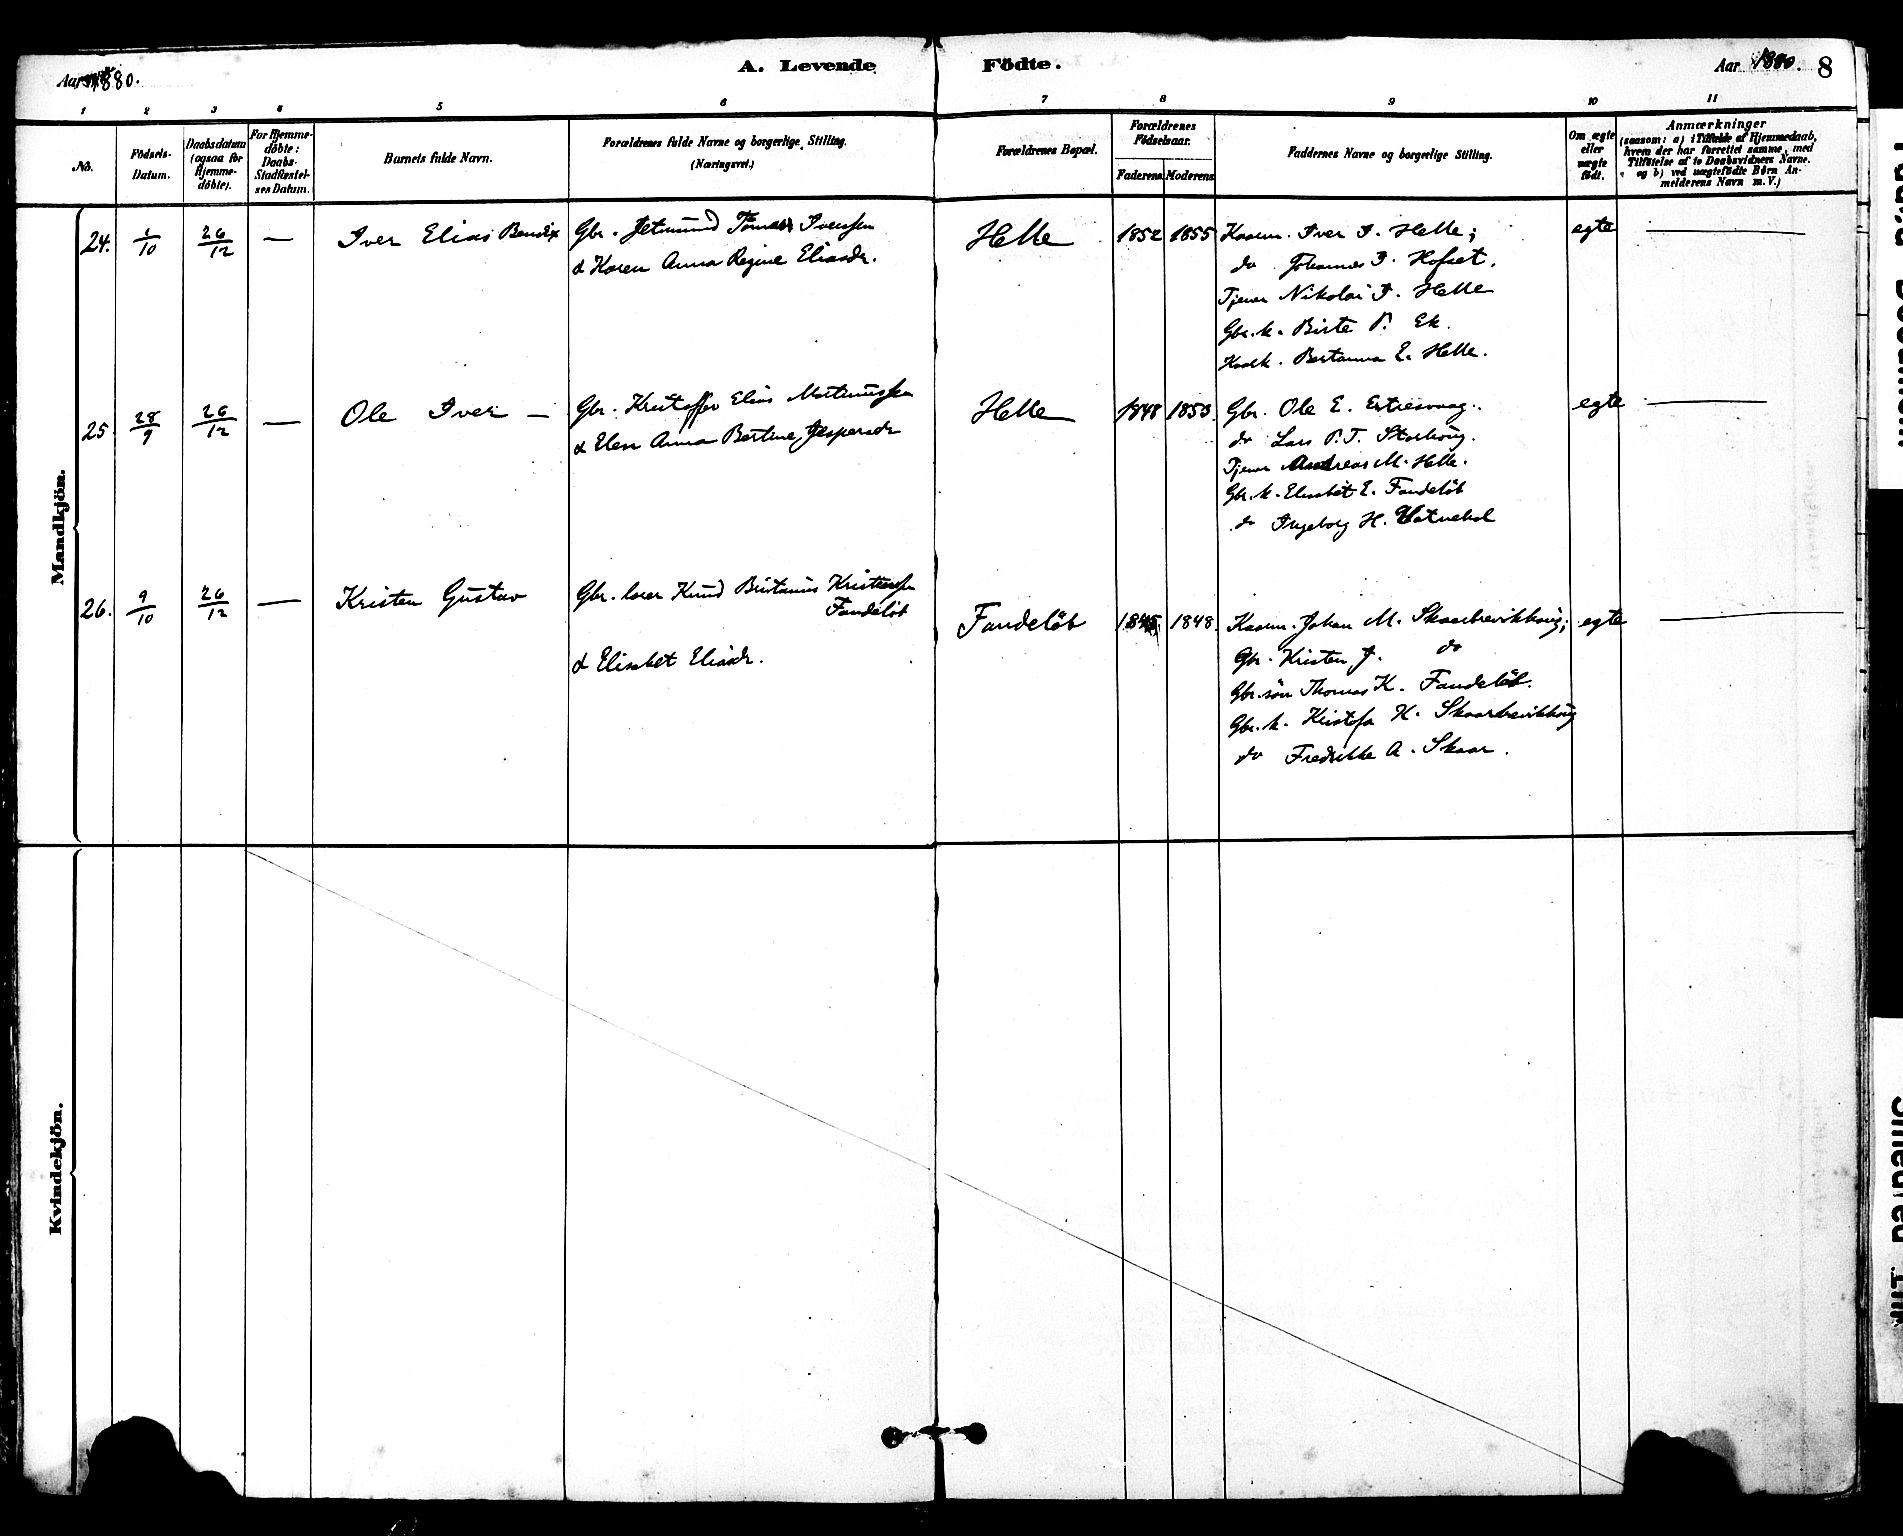 Aar 1880.
A. Levende Födte.
Aar 1880. 8
1 2 3 4 5 6 7 8 9 10 11
No.
Födsels-Datum.
Daabsdatum (ogsaa for Hjemme-döbte).
For Hjemme-döbte: Daabs-Stadfæstel-ses Datum.
Barnets fulde Navn.
Forældrenes fulde Navne og borgerlige Stilling. (Næringsvei.)
Forældrenes Bopæl.
Forældrenes Födselsaar.
Faderens. Moderens.
Faddernes Navne og borgerlige Stilling.
Om ægte eller uægte födt.
Anmærkninger
(saasom: a) i Tilfælde af Hjemmedaab, hvem der har forrettet samme, med Tilföielse af to Daabsvidners Navne. og b) ved uægtefödte Börn An-melderens Navn m. V.)
Mandkjön.
24. 26/12 — Iver Elias Bendix
Gbr. Jetmund Tomas Iversen
& Karen Anna Regine Eliasdr.
Helle 1852 1855
Kaarm. Iver J. Helle;
do Johannes I. Hofset.
Tjener Nikolai J. Helle
Gbr.k. Birte P. Ek.
Kaark. Bertanna E. Helle.
egte —
25. 28/9 26/12 — Ole Iver —
Gbr. Kristoffer Elias Martinussen
& Elen Anna Bertine Jespersdr
Helle 1848 1853.
Gbr. Ole E.
do Lars P. T. Storhoug.
Tjener Andreas M. Helle.
Gbr.k. Elisabet E. Fandelöb
do Ingeborg H.
egte —
26. 9/10 26/12 — Kristen Gustav
Gbr. Knud Kristensen
Fandelöb
& Elisabet Eliasdr.
Fandelöb 1845 1848.
Kaarm. Johan M. Skaarbrevikhoug;
Gbr. Kristen J. do
Gbr.sön Thomas K. Fandelöb.
Gbr.k. H. Skaarbrevikhoug
do Fredrikke A. Skaar.
egte —
Kvindekjön.